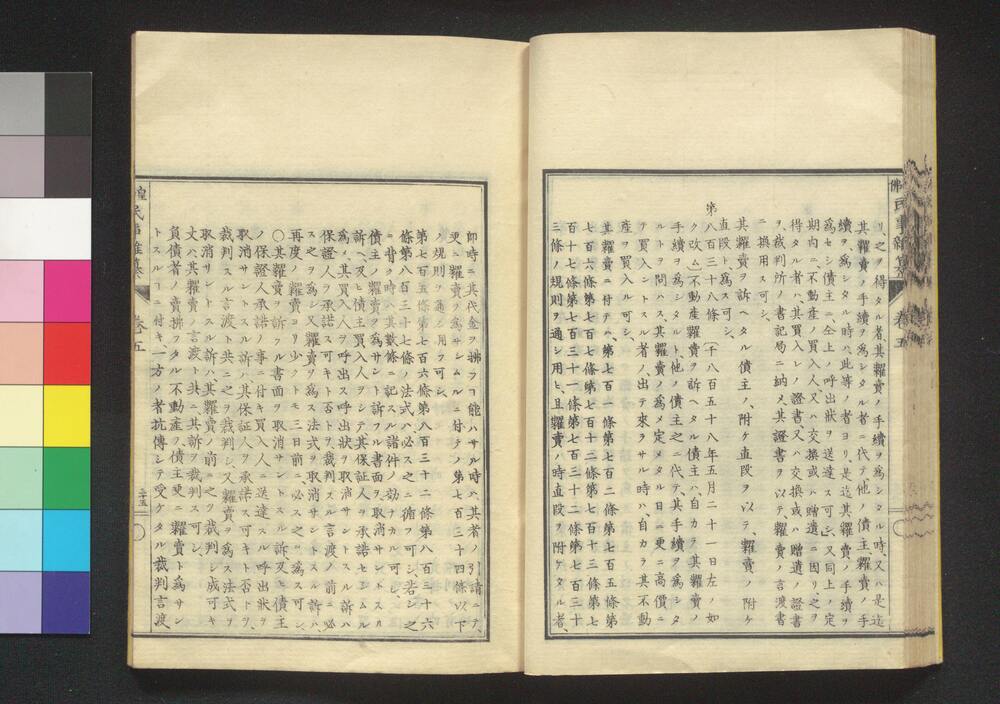 リ、之ヲ得タル者其糶賣ノ手續ヲ爲シタル時、又ハ是迄
其糶賣ノ手續ヲ爲シタル者ニ代テ他ノ債主糶賣ノ手
續ヲ爲シタル時ハ、此等ノ者ヨリ是迄其糶賣ノ手續ヲ
爲セシ債主ニ、仝上ノ呼出狀ヲ送達ス可シ、又同上ノ定
期内ニ、不動産ノ買入人、又ハ交換或ハ贈遺ニ因リ之ヲ
得タル者ハ、其買入レノ證書、又ハ交換或ハ贈遺ノ證書
ヲ、裁判所ノ書記局ニ納メ、其證書ヲ以テ糶賣ノ言渡書
ニ換用ス可シ、
其糶賣ヲ訴ヘタル債主ノ附ケ直段ヲ以テ糶賣ノ附ケ
直段ト爲ス可シ、
第八百三十八條〔千八百五十八年五月二十一日左ノ如
ク改ム〕不動産糶賣ヲ訴ヘタル債主ハ自カラ其糶賣ノ
手續ヲ爲シタルト、他ノ債主之ニ代テ其手續ヲ爲シタ
ルトヲ問ハス、其糶賣ノ爲メ定メタル日ニ更ニ高價ニ
テ買入ントスル者ノ出テ來ラサル時ハ、自カラ其不動
産ヲ買入ル可シ、
其糶賣ニ付テハ、第七百一條第七百二條第七百五條第
七百六條第七百七條第七百十二條第七百十三條第七
百十七條第七百三十一條第七百三十二條第七百三十
三條ノ規則ヲ通シ用ヒ且糶賣ノ時直段ヲ附ケタル者、
佛民事新篹 卷五
卽時ニ其代金ヲ拂フヿ能ハサル時ハ、其者ノ引請ニテ、
更ニ糶賣ヲ爲サシムルニ付テノ第七百三十四條以下
ノ規則ヲ通シ用フ可シ、
第七百五條第七百六條第八百三十二條第八百三十六
條第八百三十七條ノ法式ハ必ス之ニ循フ可シ、若シ之
ニ背ク時ハ其數條ニ記スル諸件ノ効ナカル可シ、
債主ノ糶賣ヲ爲サント訴フル書面ヲ取消サントスル
訴ヘ、及ヒ債主買入人ヲシテ其保証人ヲ承諾セシムル
爲メ、其買入人ヲ呼出ス呼出狀ヲ取消サントスル訴ハ
保證人ヲ承諾ス可キト否トヲ裁判スル言渡ノ前ニ必
ス之ヲ爲シ又糶賣ヲ爲ス法式ヲ取消サントスル訴ハ、
再度ノ糶賣ヨリ少クトモ三日前ニ必ス之ヲ爲ス可シ、
〇其糶賣ヲ訴フル書面ヲ取消サントスル訴又ヒ債主
ノ保證人承諾ノ事ニ付キ買入人ニ送達スル呼出狀ヲ
取消サントスル訴ハ其保証人ヲ承諾ス可キト否トヲ、
裁判スル言渡ト共ニ之ヲ裁判シ、又糶賣ヲ爲ス法式ヲ
取消サントスル訴ハ、其糶賣ノ前ニ之ヲ裁判シ成可キ
丈ハ其糶賣ノ言渡ト共ニ其訴ヲ裁判ス可シ、
負債者ノ糶賣拂フタル不動産ヲ債主更ニ糶賣ト爲サン
トスルヿニ付キ一方ノ者抗傳シテ受ケタル裁判言渡、
卷五
三十五